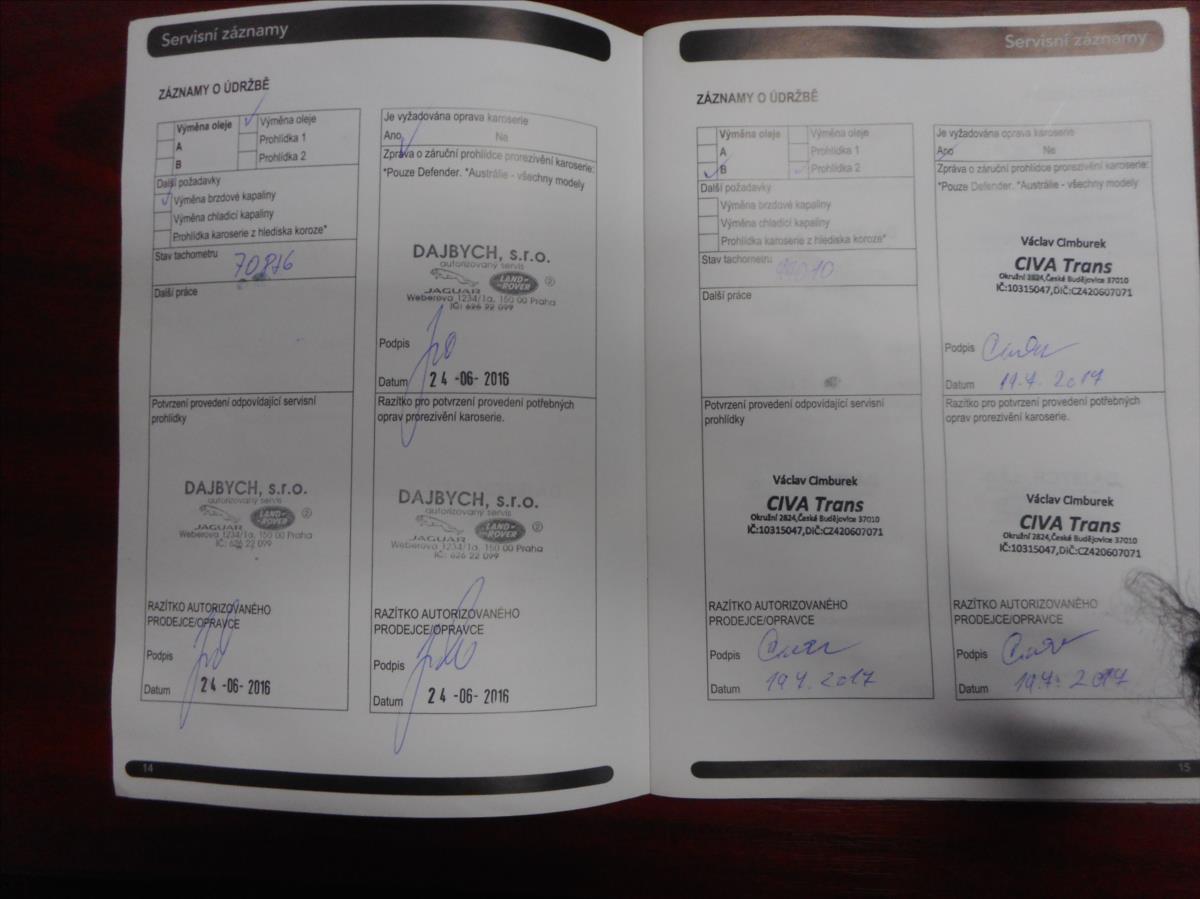 Servisní záznamy
ZÁZNAMY O ÚDRŽBĚ
Výměna oleje
A
B
Výměna oleje
Prohlídka 1
Prohlídka 2
Další požadavky
Výměna brzdové kapaliny
Výměna chladicí kapaliny
Prohlídka karoserie z hlediska koroze*
Stav tachometru 70816
Další práce
Je vyžadována oprava karoserie
Ano Ne
Zpráva o záruční prohlídce prorezivění karoserie:
*Pouze Defender. *Austrálie - všechny modely
DAJBYCH, s.r.o.
autorizovaný servis
JAGUAR LAND ROVER 2
Weberova 1234/1a, 150 00 Praha
IČ: 626 22 099
Podpis
Datum 24 -06- 2016
Potvrzení provedení odpovídající servisní
prohlídky
DAJBYCH, s.r.o.
autorizovaný servis
JAGUAR LAND ROVER 2
Weberova 1234/1a, 150 00 Praha
IČ: 626 22 099
RAZÍTKO AUTORIZOVANÉHO
PRODEJCE/OPRAVCE
Podpis
Datum 24 -06- 2016
Razítko pro potvrzení provedení potřebných
oprav prorezivění karoserie.
DAJBYCH, s.r.o.
autorizovaný servis
JAGUAR LAND ROVER 2
Weberova 1234/1a, 150 00 Praha
IČ: 626 22 099
RAZÍTKO AUTORIZOVANÉHO
PRODEJCE/OPRAVCE
Podpis
Datum 24 -06- 2016
14
Servisní záznamy
ZÁZNAMY O ÚDRŽBĚ
Výměna oleje
A
B
Výměna oleje
Prohlídka 1
Prohlídka 2
Další požadavky
Výměna brzdové kapaliny
Výměna chladicí kapaliny
Prohlídka karoserie z hlediska koroze*
Stav tachometru
Další práce
Je vyžadována oprava karoserie
Ano Ne
Zpráva o záruční prohlídce prorezivění karoserie:
*Pouze Defender. *Austrálie - všechny modely
Václav Cimburek
CIVA Trans
Okružní 2824,České Budějovice 37010
IČ:10315047,DIČ:CZ420607071
Podpis
Datum 19.4. 2017
Potvrzení provedení odpovídající servisní
prohlídky
Václav Cimburek
CIVA Trans
Okružní 2824,České Budějovice 37010
IČ:10315047,DIČ:CZ420607071
RAZÍTKO AUTORIZOVANÉHO
PRODEJCE/OPRAVCE
Podpis
Datum 19.4. 2017
Razítko pro potvrzení provedení potřebných
oprav prorezivění karoserie.
Václav Cimburek
CIVA Trans
Okružní 2824,České Budějovice 37010
IČ:10315047,DIČ:CZ420607071
RAZÍTKO AUTORIZOVANÉHO
PRODEJCE/OPRAVCE
Podpis
Datum 19.4. 2017
15